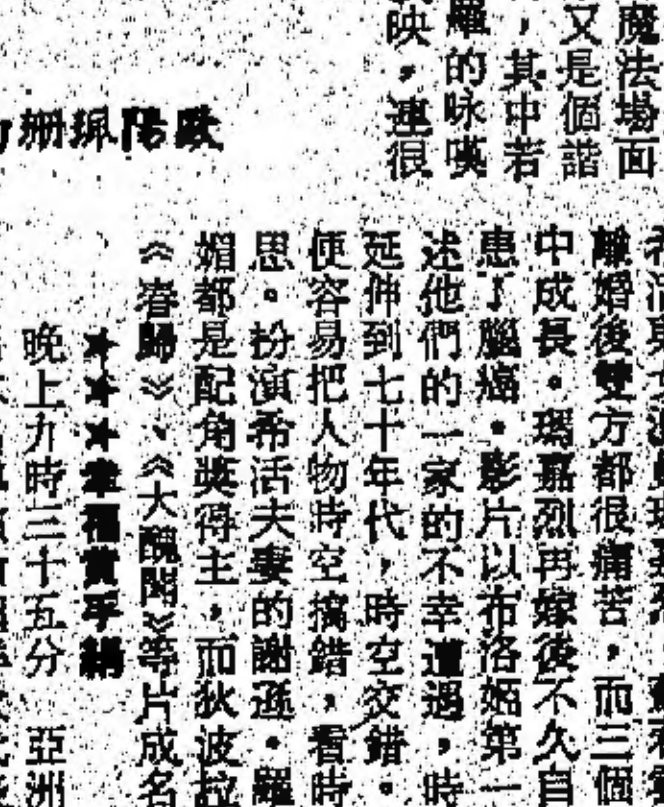 魔法場面
又是個諧
，其中若
的咏嘆
映，連很
歐陽珮珊
離婚後雙方都很痛苦，而三個
中成長。瑪嘉烈再嫁後不久自
患了腦癌。影片以布洛姬第一
述他們的一家的不幸遭遇，時
延伸到七十年代，時空交錯。
便容易把人物時空搞錯，看時
思。扮演希活夫妻的謝遜．羅
媚都是配角獎得主，而狄波拉
《春歸》、《大醜聞》等片成名
★★★幸福黃手絹
晚上九時三十五分 亞洲